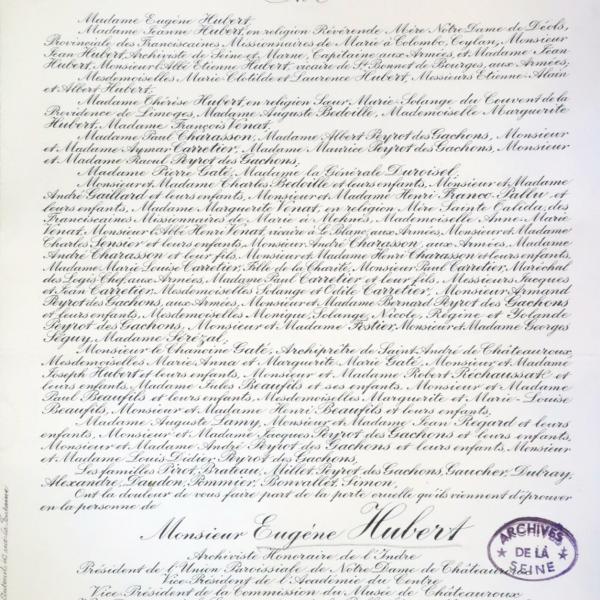 Madame Eugène Hubert,
Madame Jeanne Hubert, en religion Révérende Mère Notre Dame de Déols,
Provinciale des Franciscaines Missionnaires de Marie à Colombo, Ceylan, Monsieur
Jean Hubert, Archiviste de Seine et Marne, Capitaine aux Armées, et Madame Jean
Hubert, Monsieur l'Abbé Etienne Hubert, vicaire de St Bonnet de Bourges, aux Armées,
Mesdemoiselles Marie-Clotilde et Laurence Hubert, Messieurs Etienne-Alain
et Albert Hubert,
Madame Thérèse Hubert, en religion Sœur Marie-Solange du Couvent de la
Providence de Limoges, Madame Auguste Bedoille, Mademoiselle Marguerite
Hubert, Madame François Vénat,
Madame Paul Charasson, Madame Albert Peyrot des Gachons, Monsieur
et Madame Aymar Carretier, Madame Maurice Peyrot des Gachons, Monsieur
et Madame Raoul Peyrot des Gachons,
Madame Pierre Gaté, Madame la Générale Duroisel,
Monsieur et Madame Charles Bedoille et leurs enfants, Monsieur et Madame
André Gaillard et leurs enfants, Monsieur et Madame Henri Franco-Pallu et
leurs enfants, Madame Marguerite Vénat, en religion Mère Sainte Valéda, des
Franciscaines Missionnaires de Marie à Meknès, Mademoiselle Anne-Marie
Vénat, Monsieur l'Abbé Henri Vénat, vicaire à Le Blanc, aux Armées, Monsieur et Madame
Charles Sensier et leurs enfants, Monsieur André Charasson, aux Armées, Madame
André Charasson et leur fils, Monsieur et Madame Henri Charasson et leurs enfants,
Madame Marie-Louise Carretier, Fille de la Charité, Monsieur Paul Carretier, Maréchal
des Logis Chef, aux Armées, Madame Paul Carretier et leur fils, Messieurs Jacques
et Jean Carretier, Mesdemoiselles Solange et Odile Carretier, Monsieur Armand
Peyrot des Gachons, aux Armées, Monsieur et Madame Bernard Peyrot des Gachons
et leurs enfants, Mesdemoiselles Monique, Solange, Nicole, Régine et Yolande
Peyrot des Gachons, Monsieur et Madame Festier, Monsieur et Madame Georges
Séguy, Madame Sérézal,
Monsieur le Chanoine Gaté, Archiprêtre de Saint André de Châteauroux,
Mesdemoiselles Marie, Anna et Marguerite-Marie Gaté, Monsieur et Madame
Joseph Hubert et leurs enfants, Monsieur et Madame Robert Réchaussat et
leurs enfants, Madame Jules Beaufils et ses enfants, Monsieur et Madame
Paul Beaufils et leurs enfants, Mesdemoiselles Marguerite et Marie-Louise
Beaufils, Monsieur et Madame Henri Beaufils et leurs enfants,
Madame Auguste Lamy, Monsieur et Madame Jean Regard et leurs
enfants, Monsieur et Madame Jacques Peyrot des Gachons et leurs enfants,
Monsieur et Madame André Peyrot des Gachons et leurs enfants, Monsieur
et Madame Louis-Didier Peyrot des Gachons,
Les familles Pirot, Brateau, Millet, Peyrot des Gachons, Gaucher, Dubray,
Alexandre, Daudon, Pommier, Bonvallet, Simon,
Ont la douleur de vous faire part de la perte cruelle qu'ils viennent d'éprouver
en la personne de
Monsieur Eugène Hubert
Archiviste Honoraire de l'Indre
Président de l'Union Paroissiale de Notre Dame de Châteauroux
Vice-Président de l'Académie du Centre
Vice-Président de la Commission du Musée de Châteauroux
ARCHIVES
DE LA
SEINE